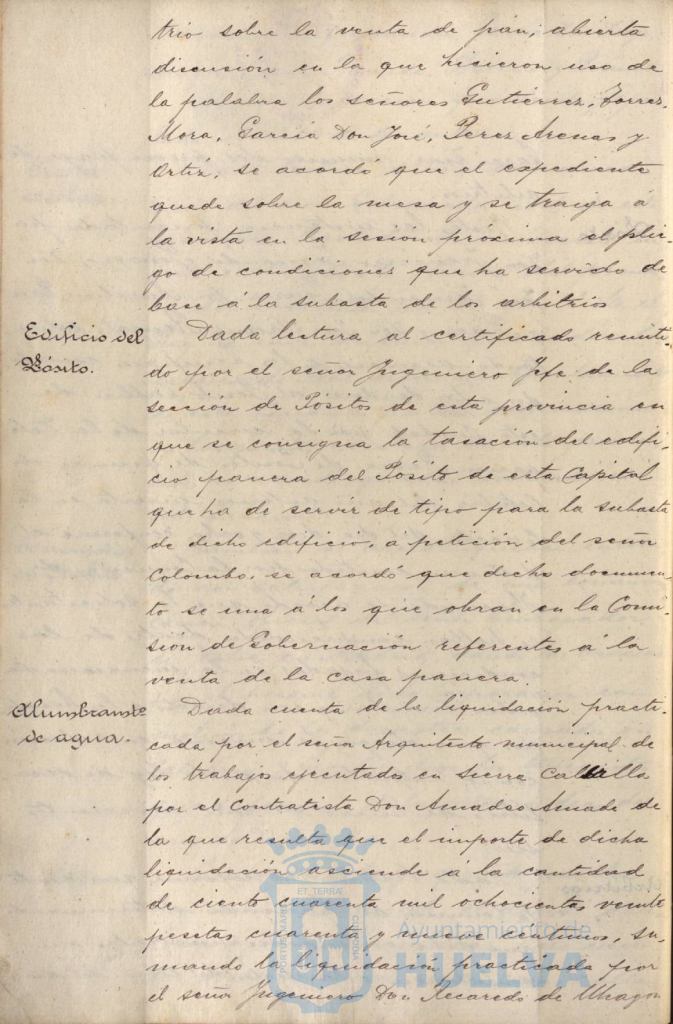 trio sobre la venta de pan, abierta
discusión en la que hicieron uso de
la palabra los señores Gutiérrez, Torres,
Mora, García Don José, Perez Arenas y
Ortíz, se acordó que el expediente
quede sobre la mesa y se traiga á
la vista en la sesión próxima el plie-
go de condiciones que ha servido de
base á la subasta de los arbitrios
Edificio del
Pósito.
Dada lectura al certificado remiti-
do por el señor Ingeniero Jefe de la
sección de Pósitos de esta provincia en
que se consigna la tasación del edifi-
cio panera del Pósito de esta Capital
que ha de servir de tipo para la subasta
de dicho edificio, á petición del señor
Colombo, se acordó que dicho documen-
to se una á los que obran en la Comi-
sión de Gobernación referentes á la
venta de la casa panera.
Alumbramto
de agua.
Dada cuenta de la liquidación practi-
cada por el señor Arquitecto municipal de
los trabajos ejecutados en Sierra
por el Contratista Don Amadeo Amade de
la que resulta que el importe de dicha
liquidación asciende á la cantidad
de ciento cuarenta mil ochocientas veinte
pesetas cuarenta y nueve centimos, su-
mando la liquidación practicada por
el señor Ingeniero Don Recaredo de Uhagon
Ayuntamiento de
HUELVA